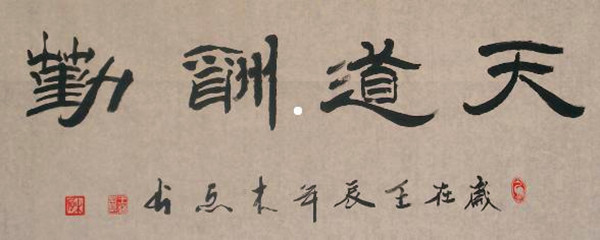 天道酬勤
歲在壬辰年木点书